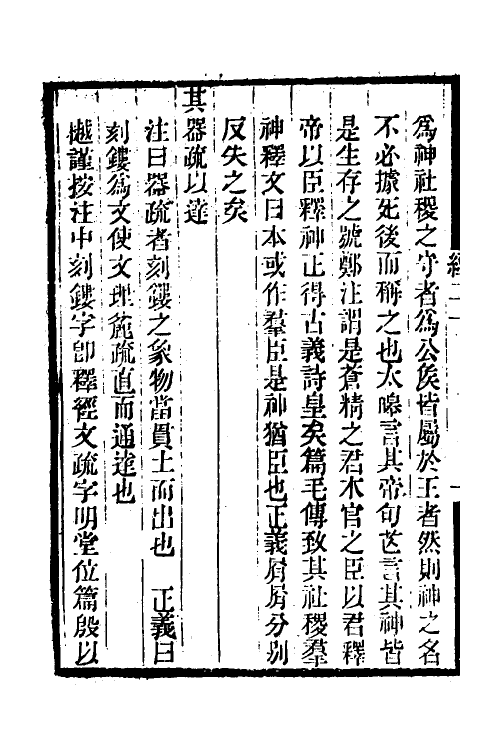 爲神社稷之守者爲公矦皆屬於王者然則神之名
不必據死後而稱之也太皞言其帝句芒言其神皆
是生存之號鄭注謂是蒼精之君木官之臣以君釋
帝以臣釋神正得古義詩皇矣篇毛傳致其社稷羣
神釋文曰本或作羣臣是神猶臣也正義屑屑分别
反失之矣
其器疏以達
注曰器疏者刻鏤之象物當貫土而出也　正義曰
刻鏤爲文使文理麄疏直而通達也
樾謹按注中刻鏤字卽釋經文疏字明堂位篇殷以